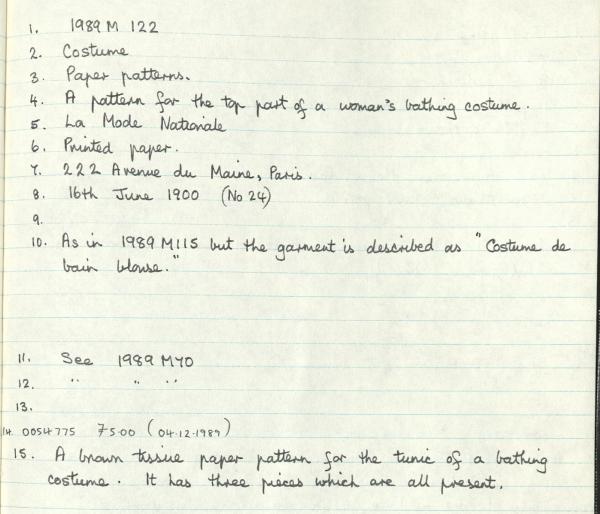 1. 1989 M 122
2. Costume
3. Paper patterns.
4. A pattern for the top part of a woman's bathing costume.
5. La Mode Nationale
6. Printed paper.
7. 222 Avenue du Maine, Paris.
8. 16th June 1900 (No 24)
9.
10. As in 1989 M115 but the garment is described as "Costume de
bain blouse."
11. See 1989 M70
12. " " "
13.
14. 0054775 75.00 (04.12.1989)
15. A brown tissue paper pattern for the tunic of a bathing
costume. It has three pieces which are all present.